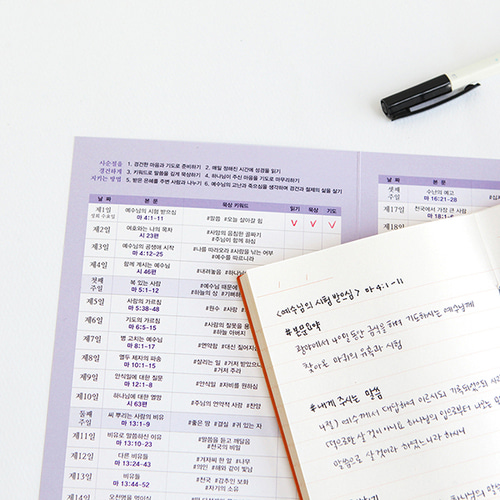 사순절을 경건하게 지키는 방법
1. 경건한 마음과 기도로 준비하기 2. 매일 정해진 시간에 성경을 읽기
3. 키워드로 말씀을 깊게 묵상하기 4. 하나님이 주신 마음을 기도로 마무리하기
5. 받은 은혜를 주변 사람과 나누기 6. 예수님의 고난과 죽으심을 생각하며 경건과 절제의 삶을 살기
날 짜 본 문 묵상 키워드 읽기 묵상 기도
제1일 성회 수요일 예수님의 시험 받으심 마 4:1-11 #말씀 #오늘 살아갈 힘 V V V
제2일 여호와는 나의 목자 시 23편 #사망의 음침한 골짜기 #주님이 함께 하심
제3일 예수님의 공생애 시작 마 4:12-25 #나를 따라오라 #사람을 낚는 어부 #예수를 따르니라
제4일 함께 계시는 예수님 시 46편 #내려놓음 #하나님
첫째 주일 복 있는 사람 마 5:1-12 #예수님 때문에 #하늘의 상 #기뻐하
제5일 사람의 가르침 마 5:38-48 #원수 #사랑
제6일 기도의 가르침 마 6:5-15 #사람의 잘못을 용 #하늘 아버
제7일 병 고치는 예수님 마 8:1-17 #연약함 #대신 짊어지
제8일 열두 제자의 파송 마 10:1-15 #살리는 일 #거저 받았으니 #거저 주라
제9일 안식일에 대한 질문 마 12:1-8 #안식일 #자비를 원하심
제10일 하나님에 대한 열망 시 63편 #주님의 언약적 사랑 #찬양
둘째 주일 씨 뿌리는 사람의 비유 마 13:1-9 #좋은 땅 #결실 #귀 있는 자
제11일 비유로 말씀하신 이유 마 13:10-23 #말씀을 듣고 깨달음 #천국의 비밀
제12일 다른 비유들 마 13:24-43 #겨자씨 한 알 #나무 #의인 #해와 같이 빛남
제13일 비유들 마 13:44-52 #천국 #감추인 보화 #자기의 소유
제14일 오천명을 먹이심
날 짜 본 문
첫째 주일 수난의 예고 마 16:21-28
제17일 천국에서 가장 큰 사람 마 18:1-
제18일
<예수님의 시험 받으심> 마 4:1-11
#본문요약
광야에서 40일 동안 금식을 하며 기도하시는 예수님께
찾아온 마귀의 유혹과 시험
#내게 주시는 말씀
4절) 예수께서 대답하여 이르시되 기록되었으되 사람이
떡으로만 살 것이 아니요 하나님의 입으로부터 나오는 모든
말씀으로 살 것이라 하였느니라 하시니